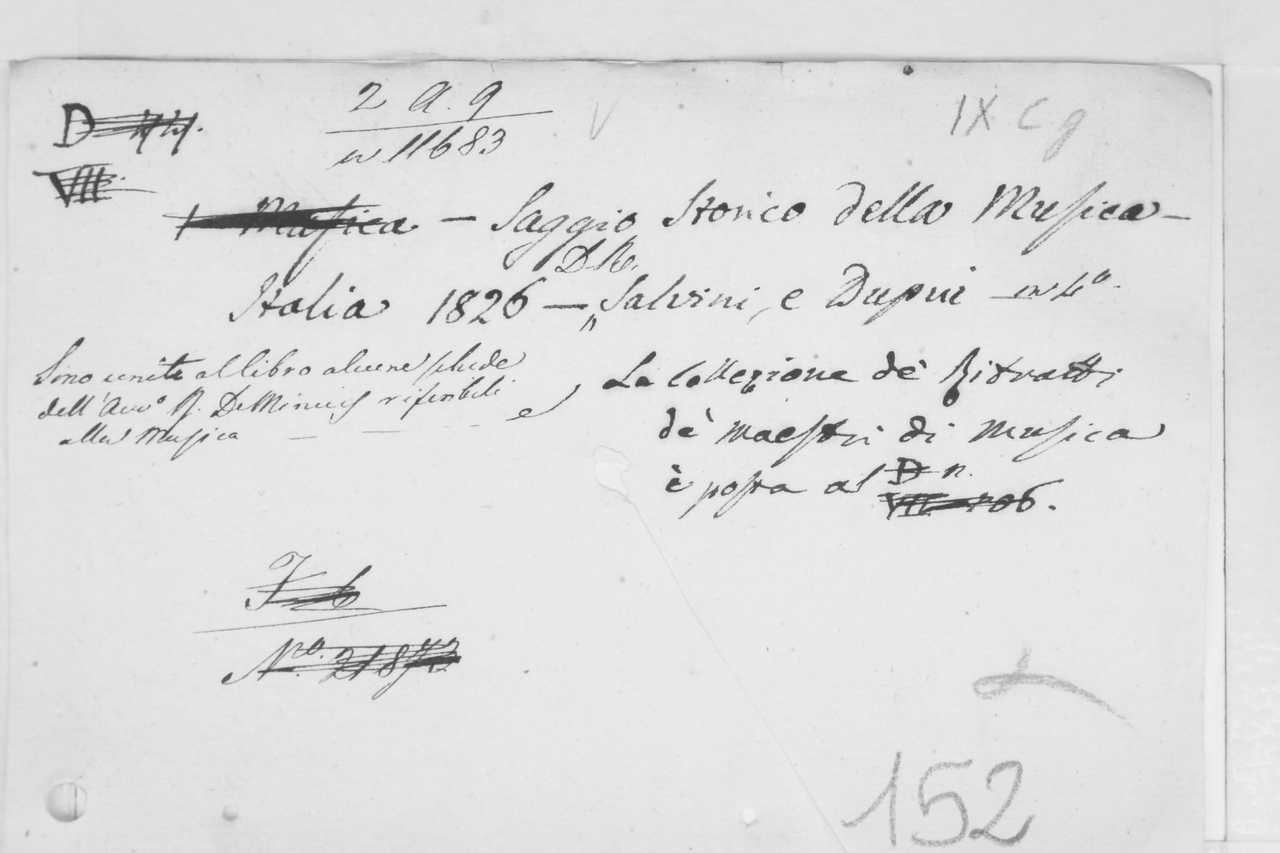 2 A. 9
11683
IX C g
VIII.
Musica — Saggio Storico della Musica —
D. R.
Italia 1826 — Salvini, e Dupui in 4°.
Sono unite al libro alcune schede
dell'Avv° R. DeMinicis riferibili
alla Musica
e
La Collezione de' Ritratti
de' Maestri di Musica
è posta al D n.
VII 206.
F 6
N°. 21873
152